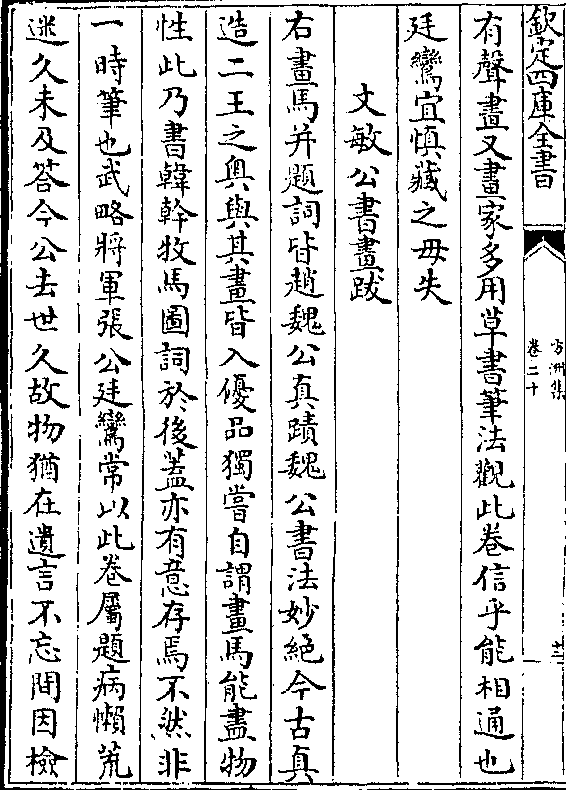 欽定四庫全書
方洲集
卷二十
有聲畫又畫家多用草書筆法觀此卷信乎能相通也
廷鸞宜慎藏之毋失
文敏公書畫跋
右畫馬并題詞皆趙魏公真蹟魏公書法妙絶今古真
造二王之奥與其畫皆入優品獨嘗自謂畫馬能盡物
性此乃書韓幹牧馬圖詞於後蓋亦有意存焉不然非
一時筆也武略將軍張公廷鸞常以此卷屬題病懶荒
迷久未及答今公去世久故物猶在遺言不忘間因檢